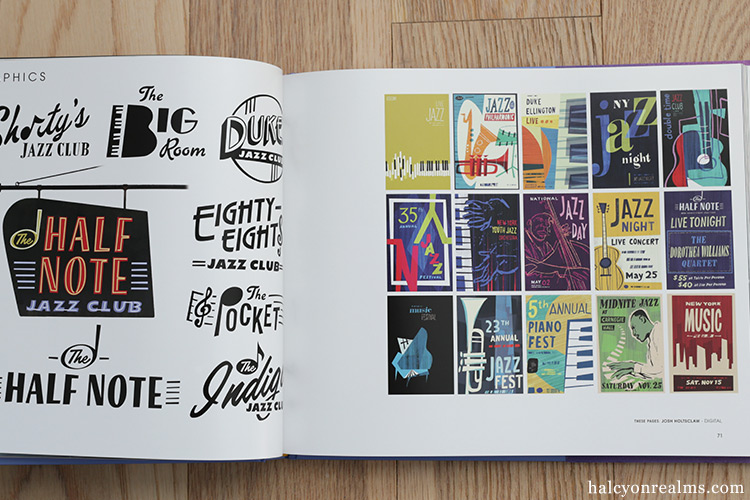 APHICS
Shorty's
JAZZ CLUB
The
BIG
Room
DUKE
JAZZ CLUB
EIGHTY-
EIGHTS
JAZZ CLUB
The
HALF
NOTE
JAZZ CLUB
The
POCKET
The
HALF NOTE
The
Indigo
JAZZ CLUB
LIVE
JAZZ
JAZZ
PHILHARMONIC
DUKE
ELLINGTON
LIVE
NY
jazz
night
JAZZ
CLUB
double time
35th
ANNUAL
NY
JAZZ
FESTIVAL
NEW YORK
YOUTH JAZZ
ORCHESTRA
NATIONAL
JAZZ
DAY
MAY
JAZZ
NIGHT
LIVE CONCERT
May 25
The
HALF NOTE
LIVE TONIGHT
THE
DOROTHEA WILLIAMS
QUARTET
$55 at Table Per Person
$40 at Bar Per Person
music
FESTIVAL
23TH
ANNUAL
JAZZ
FEST
5th ANNUAL
PIANO
FEST
MIDNITE JAZZ
AT
CARNEGIE
HALL
SATURDAY NOV. 25
NEW YORK
MUSIC
SAT. NOV 15
THESE PAGES: JOSH HOLTSCLAW - DIGITAL
71
halcyonrealms.com